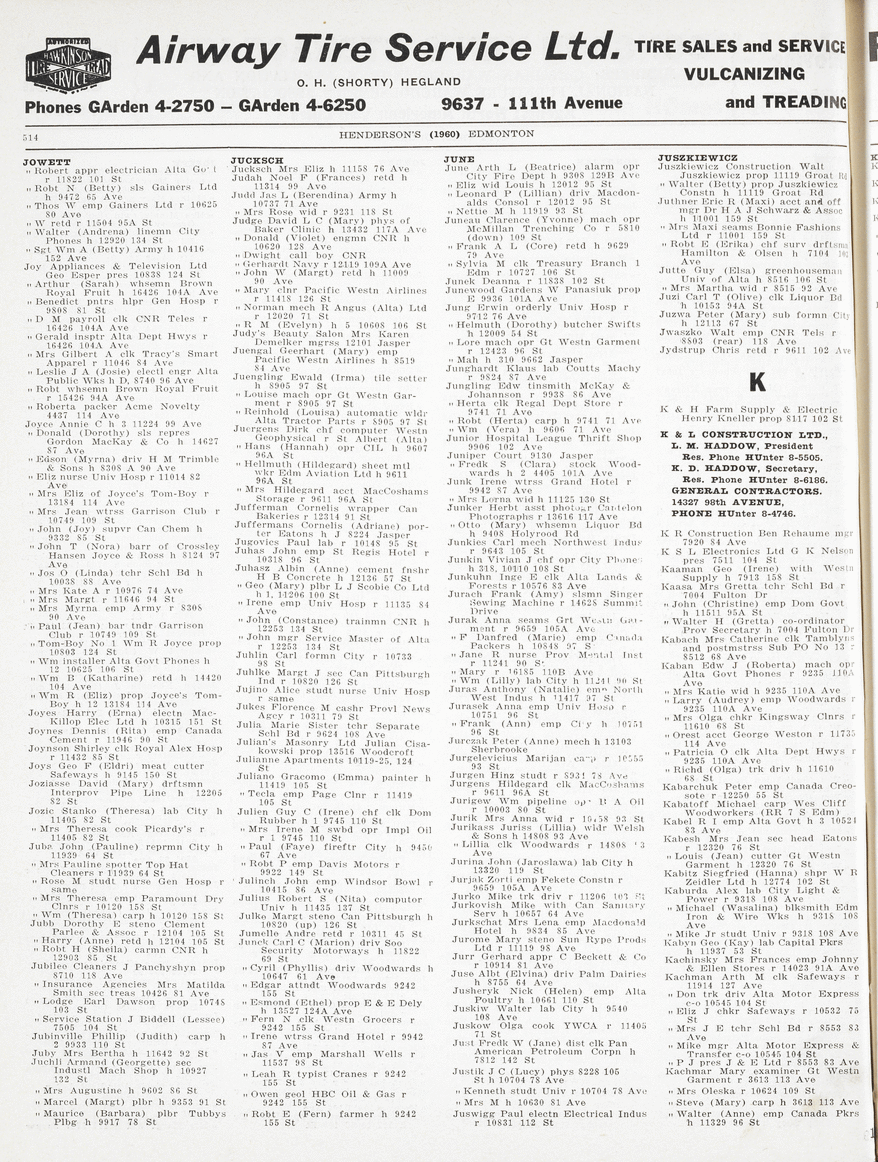 AUTHORIZED
HAWKINSON
TIRE TREAD
SERVICE
Airway Tire Service Ltd.
O. H. (SHORTY) HEGLAND
TIRE SALES and SERVICE
VULCANIZING
and TREADING
Phones GArden 4-2750 — GArden 4-6250
9637 - 111th Avenue
514
HENDERSON'S (1960) EDMONTON
JOWETT
" Robert appr electrician Alta Gov't
r 11822 101 St
" Robt N (Betty) sls Gainers Ltd
h 9472 65 Ave
" Thos W emp Gainers Ltd r 10625
80 Ave
" W retd r 11504 95A St
" Walter (Andrena) linemn City
Phones h 12920 134 St
" Sgt Wm A (Betty) Army h 10416
152 Ave
Joy Appliances & Television Ltd
Geo Esper pres 10838 124 St
" Arthur (Sarah) whsemn Brown
Royal Fruit h 16426 104A Ave
" Benedict pntrs hlpr Gen Hosp r
9808 81 St
" D M payroll clk CNR Teles r
16426 104A Ave
" Gerald insptr Alta Dept Hwys r
16426 104A Ave
" Mrs Gilbert A clk Tracy's Smart
Apparel r 11046 84 Ave
" Leslie J A (Josie) electl engr Alta
Public Wks h D, 8740 96 Ave
" Robt whsemn Brown Royal Fruit
r 15426 94A Ave
" Roberta packer Acme Novelty
4437 114 Ave
Joyce Annie C h 3 11224 99 Ave
" Donald (Dorothy) sls repres
Gordon MacKay & Co h 14627
87 Ave
" Edson (Myrna) driv H M Trimble
& Sons h 8308 A 90 Ave
" Eliz nurse Univ Hosp r 11014 82
Ave
" Mrs Eliz of Joyce's Tom-Boy r
13184 114 Ave
" Mrs Jean wtrss Garrison Club r
10749 109 St
" John (Joy) supvr Can Chem h
9332 85 St
" John T (Nora) barr of Crossley
Hansen Joyce & Ross h 8124 97
Ave
" Jos O (Linda) tchr Schl Bd h
10038 88 Ave
" Mrs Kate A r 10976 74 Ave
" Mrs Margt r 11646 94 St
" Mrs Myrna emp Army r 8308
90 Ave
" Paul (Jean) bar tndr Garrison
Club r 10749 109 St
" Tom-Boy No 1 Wm R Joyce prop
10803 124 St
" Wm installer Alta Govt Phones h
12 10625 106 St
" Wm B (Katharine) retd h 14420
104 Ave
" Wm R (Eliz) prop Joyce's Tom-
Boy h 12 13184 114 Ave
Joyes Harry (Erna) electn Mac-
Killop Elec Ltd h 10315 151 St
Joynes Dennis (Rita) emp Canada
Cement r 11946 90 St
Joynson Shirley clk Royal Alex Hosp
r 11432 85 St
Joys Geo F (Eldri) meat cutter
Safeways h 9145 150 St
Joziasse David (Mary) drftsmn
Interprov Pipe Line h 12205
82 St
Jozic Stanko (Theresa) lab City h
11405 82 St
" Mrs Theresa cook Picardy's r
11405 82 St
Juba John (Pauline) reprmn City h
11939 64 St
" Mrs Pauline spotter Top Hat
Cleaners r 11939 64 St
" Rose M studt nurse Gen Hosp r
same
" Mrs Theresa emp Paramount Dry
Clnrs r 10120 158 St
" Wm (Theresa) carp h 10120 158 St
Jubb Dorothy E steno Clement
Parlee & Assoc r 12104 105 St
" Harry (Anne) retd h 12104 105 St
" Robt H (Sheila) carmn CNR h
12903 85 St
Jubilee Cleaners J Panchyshyn prop
8710 118 Ave
" Insurance Agencies Mrs Matilda
Smith sec treas 10426 81 Ave
" Lodge Earl Dawson prop 10748
103 St
" Service Station J Biddell (Lessee)
7505 104 St
Jubinville Phillip (Judith) carp h
2 9933 110 St
Juby Mrs Bertha h 11642 92 St
Juchli Armand (Georgette) sec
Industl Mach Shop h 10927
132 St
" Mrs Augustine h 9602 86 St
" Marcel (Margt) plbr h 9353 91 St
" Maurice (Barbara) plbr Tubbys
Plbg h 9917 78 St
JUCKSCH
Jucksch Mrs Eliz h 11158 76 Ave
Judah Noel F (Frances) retd h
11314 99 Ave
Judd Jas L (Berendina) Army h
10737 71 Ave
" Mrs Rose wid r 9231 118 St
Judge David L C (Mary) phys of
Baker Clinic h 13432 117A Ave
" Donald (Violet) engmn CNR h
10620 128 Ave
" Dwight call boy CNR
" Gerhardt Navy r 12119 109A Ave
" John W (Margt) retd h 11009
90 Ave
" Mary clnr Pacific Westn Airlines
r 11418 126 St
" Norman mech R Angus (Alta) Ltd
r 12020 71 St
" R M (Evelyn) h 5 10608 106 St
Judy's Beauty Salon Mrs Karen
Demelker mgrss 12101 Jasper
Juengal Geerhart (Mary) emp
Pacific Westn Airlines h 8519
84 Ave
Juengling Ewald (Irma) tile setter
h 8905 97 St
" Louise mach opr Gt Westn Gar-
ment r 8905 97 St
" Reinhold (Louisa) automatic wldr
Alta Tractor Parts r 8905 97 St
Juergens Dirk chf computer Westn
Geophysical r St Albert (Alta)
" Hans (Hannah) opr CIL h 9607
96A St
" Hellmuth (Hildegard) sheet mtl
wkr Edm Aviation Ltd h 9611
96A St
" Mrs Hildegard acct MacCoshams
Storage r 9611 96A St
Jufferman Cornelis wrapper Can
Bakeries r 12314 91 St
Juffermans Cornelis (Adriane) por-
ter Eatons h J 8224 Jasper
Jugovics Paul lab r 10148 95 St
Juhas John emp St Regis Hotel r
10318 96 St
Juhasz Albin (Anne) cement fnshr
H B Concrete h 12136 57 St
" Geo (Mary) plbr L J Scobie Co Ltd
h 1, 14206 100 St
" Irene emp Univ Hosp r 11135 84
Ave
" John (Constance) trainmn CNR h
12253 134 St
" John mgr Service Master of Alta
r 12253 134 St
Juhlin Carl formn City r 10733
98 St
Juhlke Margt J sec Can Pittsburgh
Ind r 10820 126 St
Jujino Alice studt nurse Univ Hosp
r same
Jukes Florence M cashr Provl News
Agcy r 10311 79 St
Julia Marie Sister tchr Separate
Schl Bd r 9624 108 Ave
Julian's Masonry Ltd Julian Cisa-
kowski prop 13516 Woodcroft
Julianne Apartments 10119-25, 124
St
Juliano Gracomo (Emma) painter h
11419 105 St
" Tecla emp Page Clnr r 11419
105 St
Julien Guy C (Irene) chf clk Dom
Rubber h 1 9745 110 St
" Mrs Irene M swbd opr Impl Oil
r 1 9745 110 St
" Paul (Faye) fireftr City h 9450
67 Ave
" Robt P emp Davis Motors r
9922 149 St
Julinch John emp Windsor Bowl r
10415 86 Ave
Julius Robert S (Nita) computor
Univ h 11435 137 St
Julke Margt steno Can Pittsburgh h
10820 (up) 126 St
Jumello Andre retd r 10311 45 St
Junck Carl C (Marion) driv Soo
Security Motorways h 11822
69 St
" Cyril (Phyllis) driv Woodwards h
10647 61 Ave
" Edgar attndt Woodwards 9242
155 St
" Esmond (Ethel) prop E & E Dely
h 13527 124A Ave
" Fern N clk Westn Grocers r
9242 155 St
" Irene wtrss Grand Hotel r 9942
87 Ave
" Jas V emp Marshall Wells r
11537 98 St
" Leah R typist Cranes r 9242
155 St
" Owen geol HBC Oil & Gas r
9242 155 St
" Robt E (Fern) farmer h 9242
155 St
JUNE
June Arth L (Beatrice) alarm opr
City Fire Dept h 9308 129B Ave
" Eliz wid Louis h 12012 95 St
" Leonard P (Lillian) driv Macdon-
alds Consol r 12012 95 St
" Nettie M h 11919 93 St
Juneau Clarence (Yvonne) mach opr
McMillan Trenching Co r 5810
(down) 109 St
" Frank A L (Core) retd h 9629
79 Ave
" Sylvia M clk Treasury Branch 1
Edm r 10727 106 St
Junek Deanna r 11838 102 St
Junewood Gardens W Panasiuk prop
E 9936 101A Ave
Jung Erwin orderly Univ Hosp r
9712 76 Ave
" Helmuth (Dorothy) butcher Swifts
h 12009 54 St
" Lore mach opr Gt Westn Garment
r 12423 96 St
" Mah h 310 9662 Jasper
Junghardt Klaus lab Coutts Machy
r 9824 87 Ave
Jungling Edw tinsmith McKay &
Johannson r 9938 86 Ave
" Herta clk Regal Dept Store r
9741 71 Ave
" Robt (Herta) carp h 9741 71 Ave
" Wm (Vera) h 9606 71 Ave
Junior Hospital League Thrift Shop
9906 102 Ave
Juniper Court 9130 Jasper
" Fredk S (Clara) stock Wood-
wards h 2 4405 101A Ave
Junk Irene wtrss Grand Hotel r
9942 87 Ave
" Mrs Lorna wid h 11125 130 St
Junker Herbt asst photogr Castelon
Photographs r 13616 117 Ave
" Otto (Mary) whsemn Liquor Bd
h 9408 Holyrood Rd
Junkies Carl mech Northwest Indus
r 9643 105 St
Junkin Vivian J chf opr City Phones
h 318, 10110 108 St
Junkuhn Inge E clk Alta Lands &
Forests r 10576 83 Ave
Jurach Frank (Amy) slsmn Singer
Sewing Machine r 14628 Summit
Drive
Jurak Anna seams Grt Westn Gar-
ment r 9659 105A Ave
" F Danfred (Marie) emp Canada
Packers h 10848 97 St
" Jane R nurse Prov Mental Inst
r 11241 90 St
" Mary r 16185 110B Ave
" Wm (Lilly) lab City h 11241 90 St
Juras Anthony (Natalie) emp North
West Indus h 11417 97 St
Jurasek Anna emp Univ Hosp r
10751 96 St
" Frank (Ann) emp City h 10751
96 St
Jurczak Peter (Anne) mech h 13103
Sherbrooke
Jurgelevicius Marijan carp r 10555
93 St
Jurgen Hinz studt r 8931 78 Ave
Jurgens Hildegard clk MacCoshams
r 9611 96A St
Jurigew Wm pipeline opr B A Oil
r 10003 80 St
Jurik Mrs Anna wid r 10458 93 St
Jurikass Juriss (Lillia) wldr Welsh
& Sons h 14808 93 Ave
" Lillia clk Woodwards r 14808 93
Ave
Jurina John (Jaroslawa) lab City h
13320 119 St
Jurjak Zorti emp Fekete Constn r
9659 105A Ave
Jurko Mike trk driv r 11206 103 St
Jurkovish Mike with Can Sanitary
Serv h 10657 64 Ave
Jurkschat Mrs Lena emp Macdonald
Hotel h 9834 85 Ave
Jurome Mary steno Sun Rype Prods
Ltd r 11119 98 Ave
Jurr Gerhard appr C Beckett & Co
r 10914 81 Ave
Juse Albt (Elvina) driv Palm Dairies
h 8755 64 Ave
Jusheryk Nick (Helen) emp Alta
Poultry h 10661 110 St
Juskiw Walter lab City h 9540
108 Ave
Juskow Olga cook YWCA r 11405
71 St
Just Fredk W (Jane) dist clk Pan
American Petroleum Corpn h
7812 142 St
Justik J C (Lucy) phys 8228 105
St h 10704 78 Ave
" Kenneth studt Univ r 10704 78 Ave
" Mrs M h 10630 81 Ave
Juswigg Paul electn Electrical Indus
r 10831 112 St
JUSZKIEWICZ
Juszkiewicz Construction Walt
Juszkiewicz prop 11119 Groat Rd
" Walter (Betty) prop Juszkiewicz
Constn h 11119 Groat Rd
Juthner Eric R (Maxi) acct and off
mgr Dr H A J Schwarz & Assoc
h 11001 159 St
" Mrs Maxi seams Bonnie Fashions
Ltd r 11001 159 St
" Robt E (Erika) chf surv drftsmn
Hamilton & Olsen h 7104 102
Ave
Jutte Guy (Elsa) greenhouseman
Univ of Alta h 8516 106 St
" Mrs Martha wid r 8515 92 Ave
Juzi Carl T (Olive) clk Liquor Bd
h 10153 94A St
Juzwa Peter (Mary) sub formn City
h 12113 67 St
Jwaszko Walt emp CNR Tels r
8803 (rear) 118 Ave
Jydstrup Chris retd r 9611 102 Ave
K
K & H Farm Supply & Electric
Henry Kneller prop 8117 102 St
K & L CONSTRUCTION LTD.,
L. M. HADDOW, President
Res. Phone HUnter 8-5505.
K. D. HADDOW, Secretary,
Res. Phone HUnter 8-6186.
GENERAL CONTRACTORS.
14327 98th AVENUE,
PHONE HUnter 8-4746.
K R Construction Ben Rehaume mgr
7920 84 Ave
K S L Electronics Ltd G K Nelson
pres 7511 104 St
Kaaman Geo (Irene) with Westn
Supply h 7913 158 St
Kaasa Mrs Gretta tchr Schl Bd r
7004 Fulton Dr
" John (Christine) emp Dom Govt
h 11511 95A St
" Walter H (Gretta) co-ordinator
Prov Secretary h 7004 Fulton Dr
Kabach Mrs Catherine clk Tamblyns
and postmstrss Sub PO No 13 r
8512 68 Ave
Kaban Edw J (Roberta) mach opr
Alta Govt Phones r 9235 110A
Ave
" Mrs Katie wid h 9235 110A Ave
" Larry (Audrey) emp Woodwards r
9235 110A Ave
" Mrs Olga chkr Kingsway Clnrs r
11610 68 St
" Orest acct George Weston r 11735
114 Ave
" Patricia O clk Alta Dept Hwys r
9235 110A Ave
" Richd (Olga) trk driv h 11610
68 St
Kabarchuk Peter emp Canada Creo-
sote r 12250 55 St
Kabatoff Michael carp Wes Cliff
Woodworkers (RR 7 S Edm)
Kabel R I emp Alta Govt h 3 10524
83 Ave
Kabesh Mrs Jean sec head Eatons
r 12320 76 St
" Louis (Jean) cutter Gt Westn
Garment h 12320 76 St
Kabitz Siegfried (Hanna) shpr W R
Zeidler Ltd h 12774 102 St
Kaburda Alex lab City Light &
Power r 9318 108 Ave
" Michael (Wasalina) blksmith Edm
Iron & Wire Wks h 9318 108
Ave
" Mike Jr studt Univ r 9318 108 Ave
Kabyn Geo (Kay) lab Capital Pkrs
h 11937 53 St
Kachinsky Mrs Frances emp Johnny
& Ellen Stores r 14023 91A Ave
Kachman Arth M clk Safeways r
11914 127 Ave
" Don trk driv Alta Motor Express
c-o 10545 104 St
" Eliz J chkr Safeways r 10532 75
St
" Mrs J E tchr Schl Bd r 8553 83
Ave
" Mike mgr Alta Motor Express &
Transfer c-o 10545 104 St
" P J pres J & E Ltd r 8553 83 Ave
Kachmar Mary examiner Gt Westn
Garment r 3613 113 Ave
" Mrs Oleska r 10624 109 St
" Steve (Mary) carp h 3613 113 Ave
" Walter (Anne) emp Canada Pkrs
h 11329 96 St